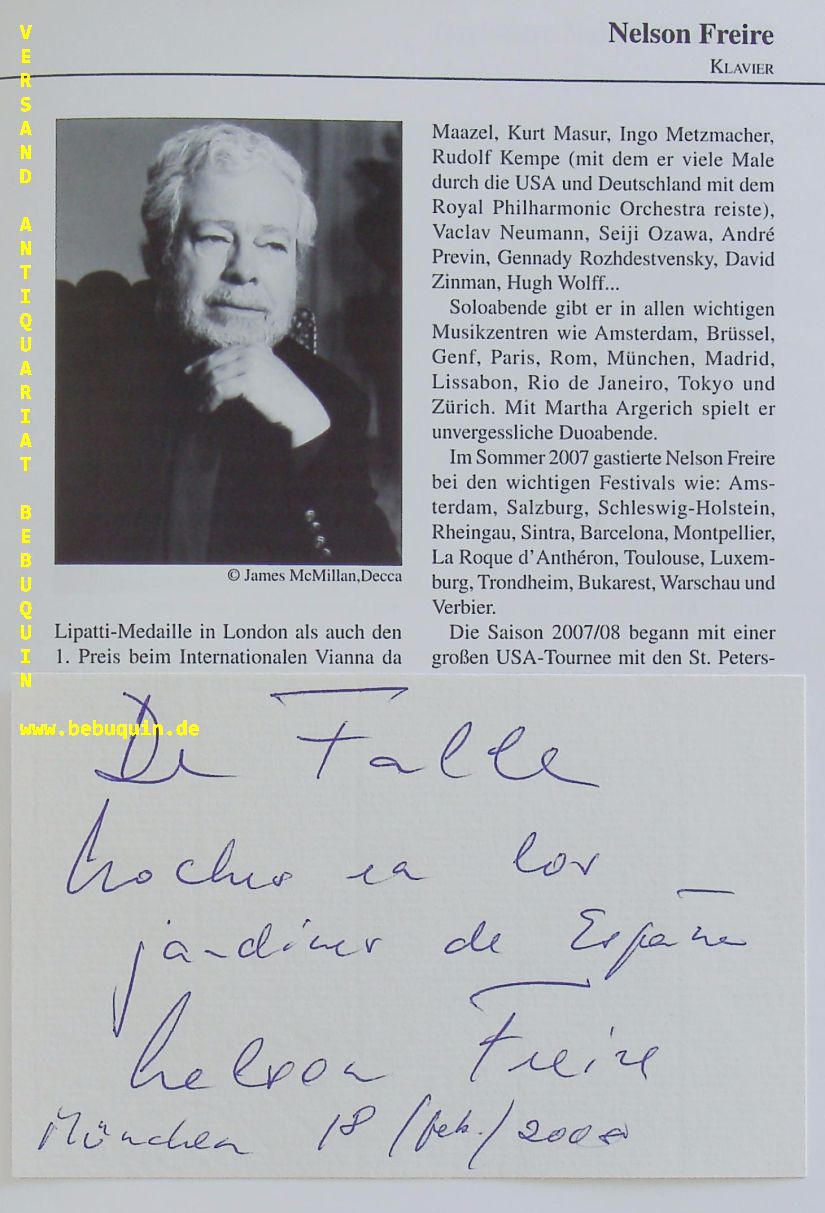 Nelson Freire
KLAVIER
VERSAND ANTIQUARIAT BEBUQUIN
www.bebuquin.de
© James McMillan,Decca
Lipatti-Medaille in London als auch den
1. Preis beim Internationalen Vianna da
Maazel, Kurt Masur, Ingo Metzmacher,
Rudolf Kempe (mit dem er viele Male
durch die USA und Deutschland mit dem
Royal Philharmonic Orchestra reiste),
Vaclav Neumann, Seiji Ozawa, André
Previn, Gennady Rozhdestvensky, David
Zinman, Hugh Wolff...
Soloabende gibt er in allen wichtigen
Musikzentren wie Amsterdam, Brüssel,
Genf, Paris, Rom, München, Madrid,
Lissabon, Rio de Janeiro, Tokyo und
Zürich. Mit Martha Argerich spielt er
unvergessliche Duoabende.
Im Sommer 2007 gastierte Nelson Freire
bei den wichtigen Festivals wie: Ams-
terdam, Salzburg, Schleswig-Holstein,
Rheingau, Sintra, Barcelona, Montpellier,
La Roque d'Anthéron, Toulouse, Luxem-
burg, Trondheim, Bukarest, Warschau und
Verbier.
Die Saison 2007/08 begann mit einer
großen USA-Tournee mit den St. Peters-
De Falla
Noches en los
jardines de España
Nelson Freire
München 18/feb./2008